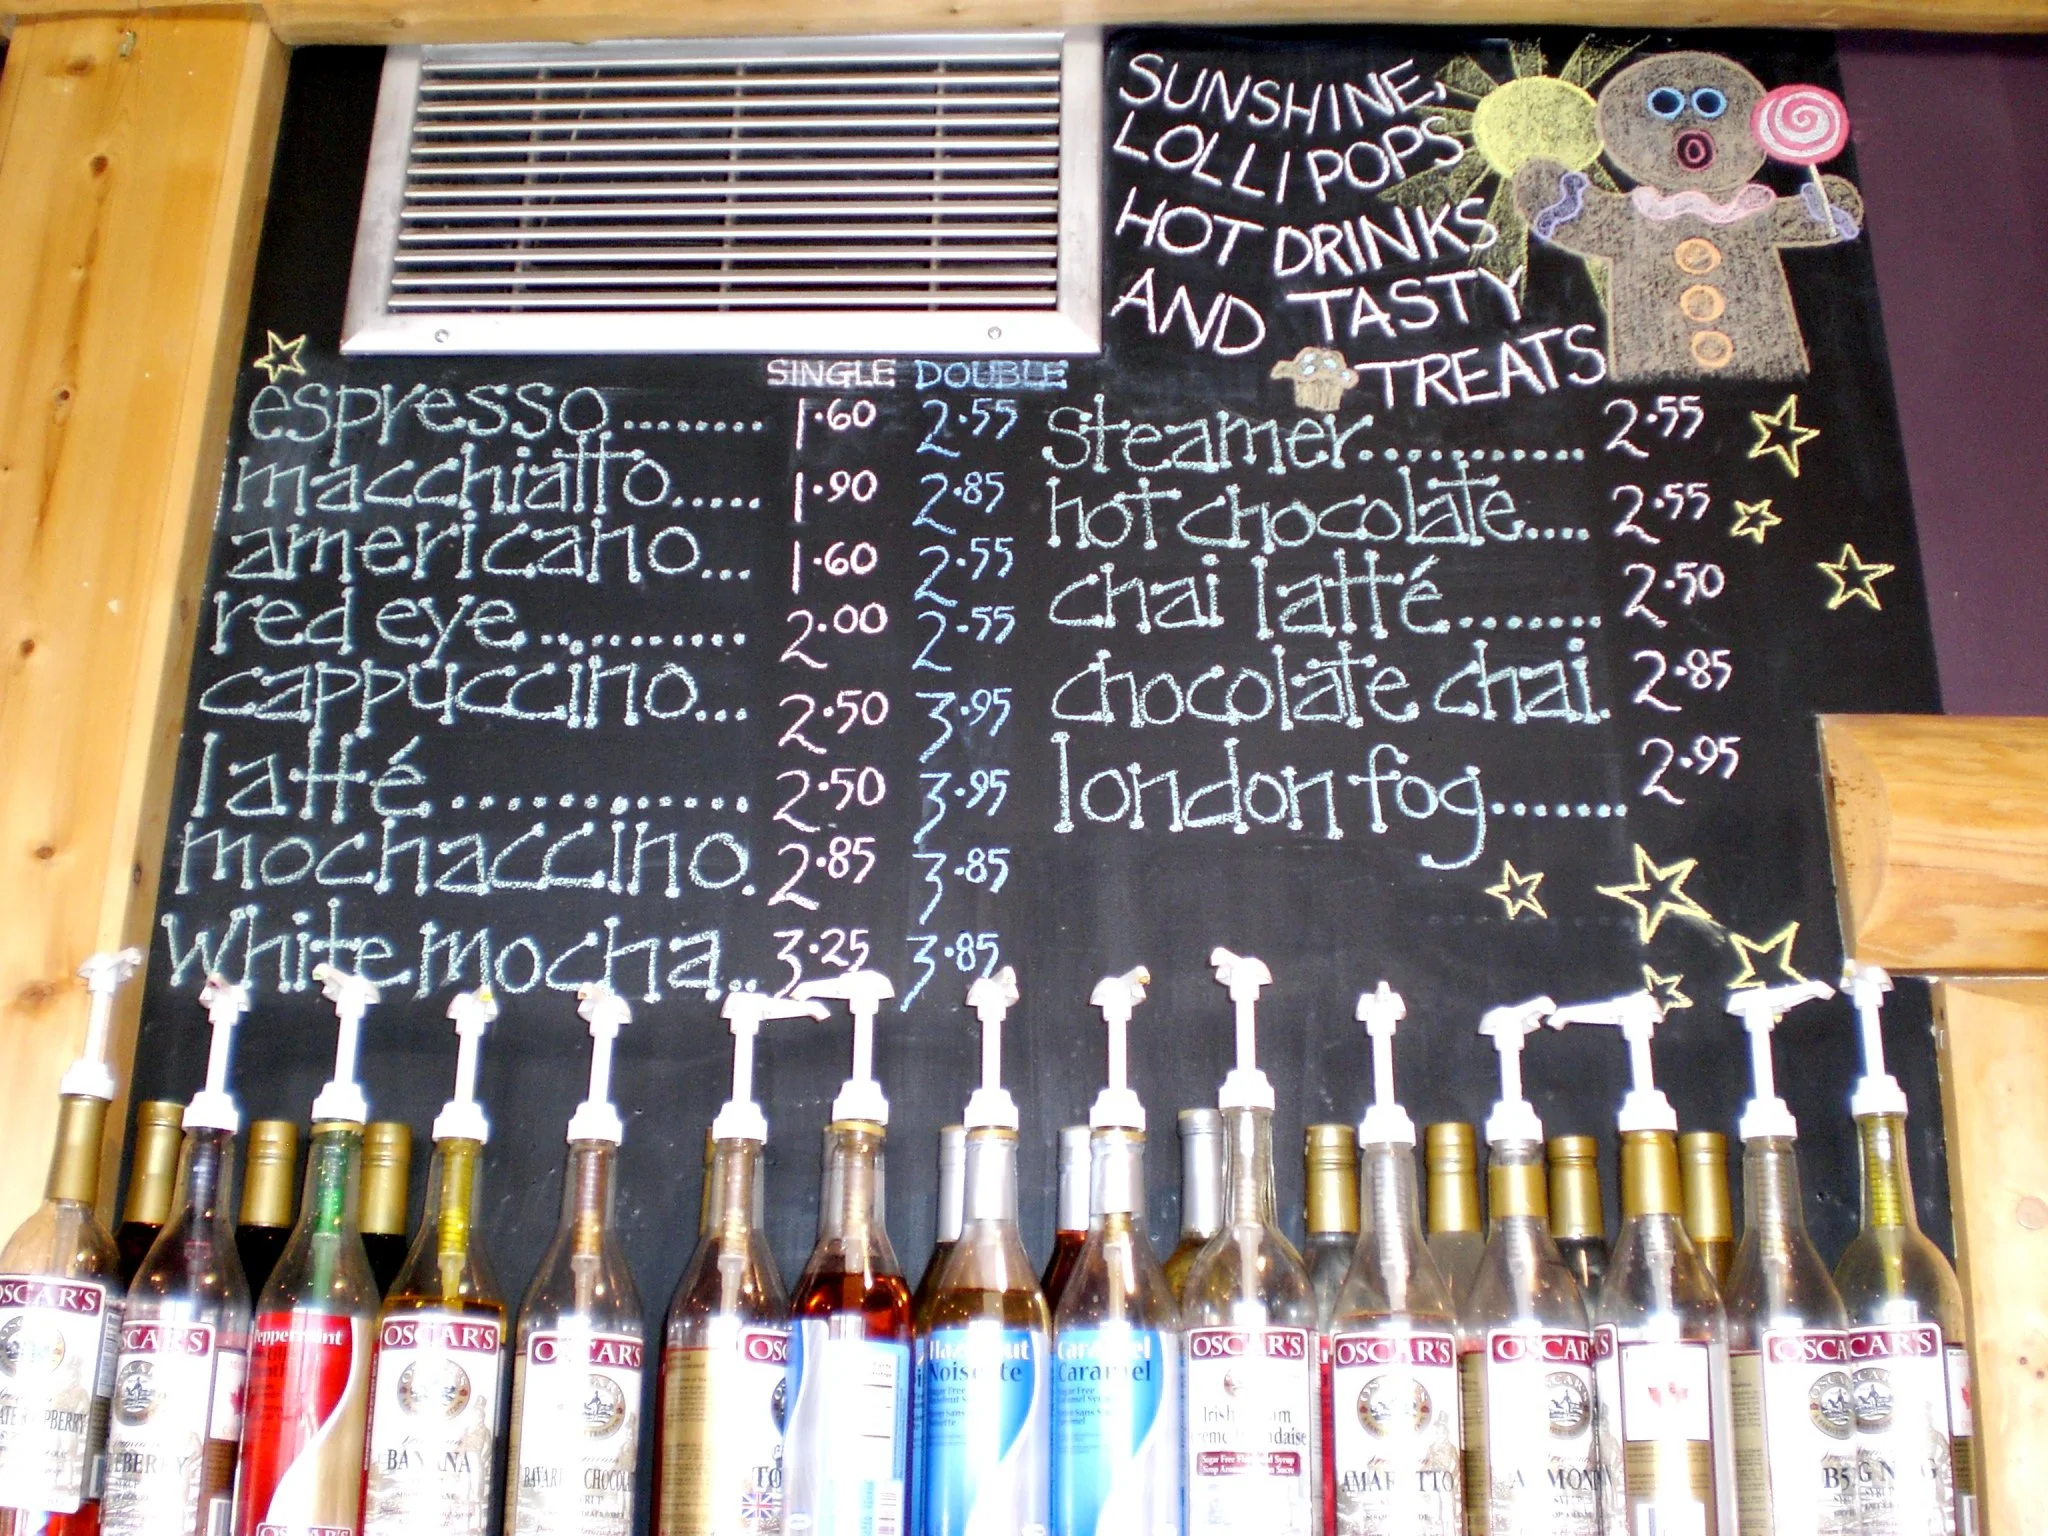 SUNSHINE,
LOLLIPOPS
HOT DRINKS
AND TASTY
TREATS
SINGLE DOUBLE
espresso........ 1.60 2.55
macchiatto..... 1.90 2.85
americano... 1.60 2.55
red eye............ 2.00 2.55
cappuccino... 2.50 3.95
latté............. 2.50 3.95
mochaccino. 2.85 3.85
white mocha.. 3.25 3.85
steamer............ 2.55
hot chocolate.... 2.55
chai latté........ 2.50
chocolate chai. 2.85
london fog....... 2.95
OSCAR'S
OSCAR'S
Peppermint
OSCAR'S
OSCAR'S
BANANA
OSCAR'S
Noisette
Caramel
Caramel
Sugar Free
OSCAR'S
Irish
Sugar Free
OSCAR'S
OSCAR'S